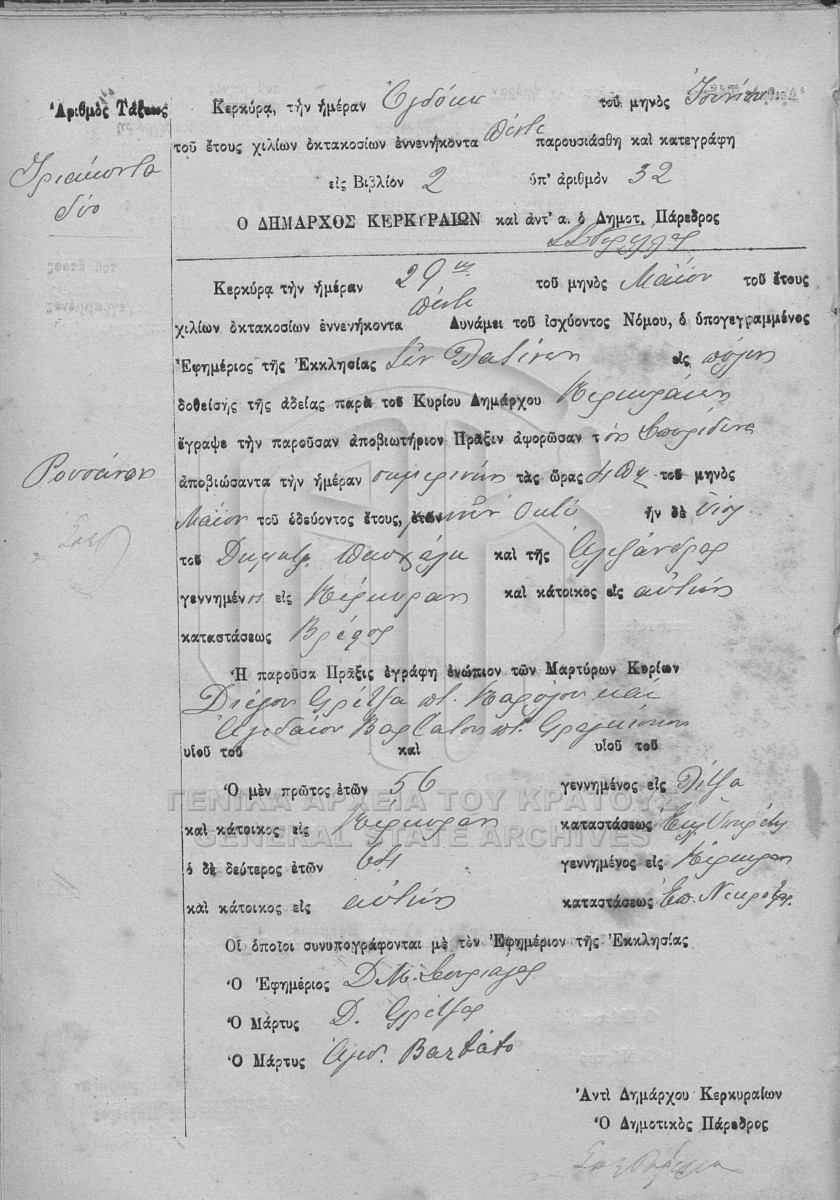 Ἀριθμὸς Τάξεως
Τριάκοντα
δύο
Κερκύρα, τὴν ἡμέραν Ὀγδόην τοῦ μηνὸς Ἰουνίου
τοῦ ἔτους χιλίων ὀκτακοσίων ἐννενήκοντα πέντε παρουσιάσθη καὶ κατεγράφη
εἰς Βιβλίον 2 ὑπ' ἀριθμὸν 32
Ο ΔΗΜΑΡΧΟΣ ΚΕΡΚΥΡΑΙΩΝ καὶ ἀντ' α. ὁ Δημοτ. Πάρεδρος
Κερκύρᾳ τὴν ἡμέραν 29 τοῦ μηνὸς Μαΐου τοῦ ἔτους
χιλίων ὀκτακοσίων ἐννενήκοντα πέντε Δυνάμει τοῦ ἰσχύοντος Νόμου, ὁ ὑπογεγραμμένος
Ἐφημέριος τῆς Ἐκκλησίας τῶν Λατίνων εἰς πόλιν
δοθείσης τῆς ἀδείας παρὰ τοῦ Κυρίου Δημάρχου Κερκυραίων
ἔγραψε τὴν παροῦσαν ἀποβιωτήριον Πρᾶξιν ἀφορῶσαν τὸν Σπυρίδωνα
Ρουσάνων
ἀποβιώσαντα τὴν ἡμέραν σημερινὴν τὰς ὥρας 4 τοῦ μηνὸς
Μαΐου τοῦ ὁδεύοντος ἔτους, ἐτῶν μηνῶν ὀκτὼ ἦν δὲ υἱὸς
τοῦ Δημητ. Πασχάλη καὶ τῆς Ἀλεξάνδρας
γεννημένη εἰς Κέρκυραν καὶ κάτοικος εἰς αὐτὴν
καταστάσεως Βρέφος
Ἡ παροῦσα Πρᾶξις ἐγράφη ἐνώπιον τῶν Μαρτύρων Κυρίων
υἱοῦ τοῦ καὶ υἱοῦ τοῦ
Ὁ μὲν πρῶτος ἐτῶν 56 γεννημένος εἰς
καὶ κάτοικος εἰς Κέρκυραν καταστάσεως
ὁ δὲ δεύτερος ἐτῶν 64 γεννημένος εἰς Κέρκυραν
καὶ κάτοικος εἰς αὐτὴν καταστάσεως
Οἱ ὁποῖοι συνυπογράφονται μὲ τὸν Ἐφημέριον τῆς Ἐκκλησίας
Ὁ Ἐφημέριος Δ. Μ.
Ὁ Μάρτυς Δ.
Ὁ Μάρτυς Bartato
Ἀντὶ Δημάρχου Κερκυραίων
Ὁ Δημοτικὸς Πάρεδρος
ΓΕΝΙΚΑ ΑΡΧΕΙΑ ΤΟΥ ΚΡΑΤΟΥΣ
GENERAL STATE ARCHIVES